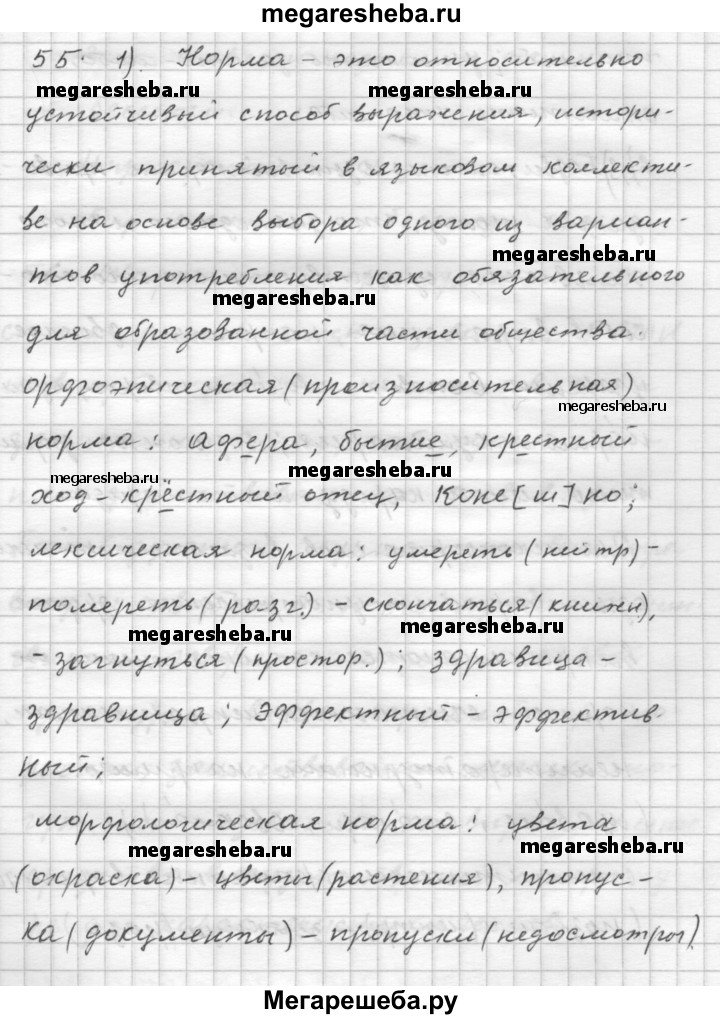 megaresheba.ru
55. 1) Норма – это относительно
megaresheba.ru megaresheba.ru
устойчивый способ выражения, истори-
чески принятый в языковом коллекти-
ве на основе выбора одного из вариан-
megaresheba.ru
тов употребления как обязательного
megaresheba.ru
для образованной части общества.
орфоэпическая (произносительная)
megaresheba.ru
норма: афера, бытие, крестный
megaresheba.ru megaresheba.ru
ход – крёстный отец, коне[ш]но;
лексическая норма: умереть (нейтр) –
помереть (разг.) – скончаться (книжн),
megaresheba.ru megaresheba.ru
– загнуться (простор.); здравица –
здравница; эффектный – эффектив-
ный;
морфологическая норма: цвета
megaresheba.ru megaresheba.ru
(окраска) – цветы (растения), пропус-
ка (документы) – пропуски (недосмотры).
Мегарешеба.ру